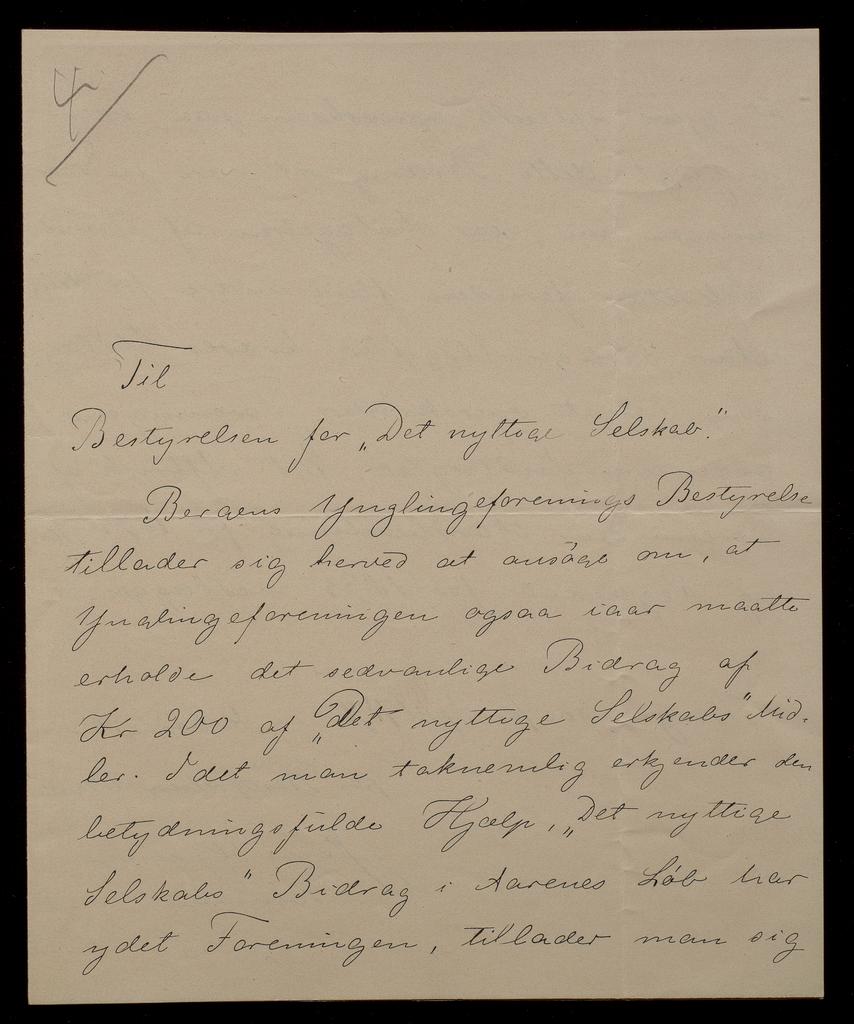 4
Til
Bestyrelsen for „Det nyttige Selskab".
Bergens Ynglingeforenings Bestyrelse
tillader sig herved at ansöge om, at
Ynglingeforeningen ogsaa iaar maatte
erholde det sedvanlige Bidrag af
Kr 200 af „Det nyttige Selskabs" Mid-
ler. Idet man taknemlig erkjender den
betydningsfulde Hjælp, „Det nyttige
Selskabs" Bidrag i Aarenes Löb har
ydet Foreningen, tillader man sig